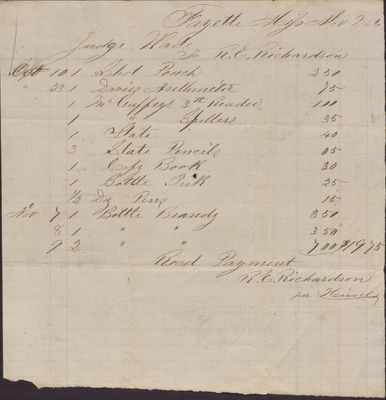 Fayette Miss Nov 9
Judge Wade
To R.E. Richardson
Oct 10 1 Shot Pouch 2 50
" 23 1 Davies Arithmetic 75
1 McGuffeys 3rd Reader 1 00
1 " Spellers 35
1 Slate 40
3 Slate Pencils 05
1 Copy Book 30
1 Bottle Ink 25
1/2 Dz Pens 15
Nov 7 1 Bottle Brandy 3 50
8 1 " " 3 50
9 2 " " 7 00 $19 75
Recd Payment
R.E. Richardson
per